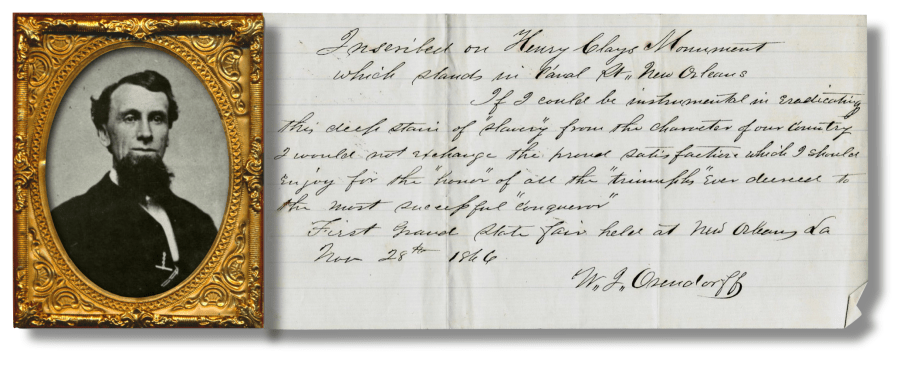 Inscribed on Henry Clays Monument
which stands in Canal St,, New Orleans
If I could be instrumental in eradicating
this deep stain of "slavery" from the character of our Country
I would not exchange the proud satisfaction which I should
enjoy for the "honor" of all the "triumphs" ever decreed to
the most successful "conqueror"
First Grand State fair held at New Orleans La
Nov 28th 1866
W,, J,, Osendorff